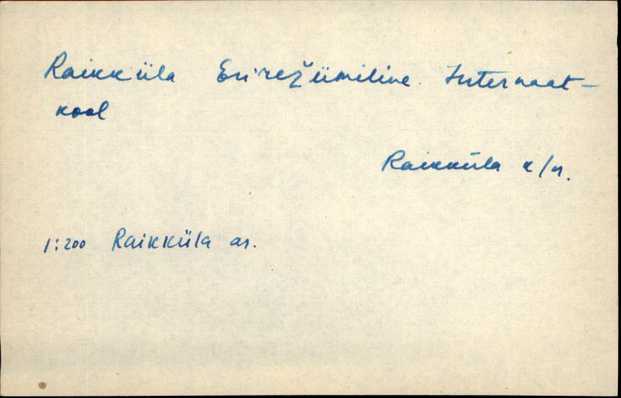 Raikküla Erirežiimiline Internaat-
kool
Raikküla k/n.
1:200 Raikküla as.